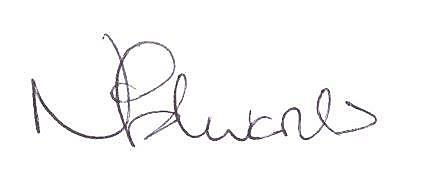 N Edwards